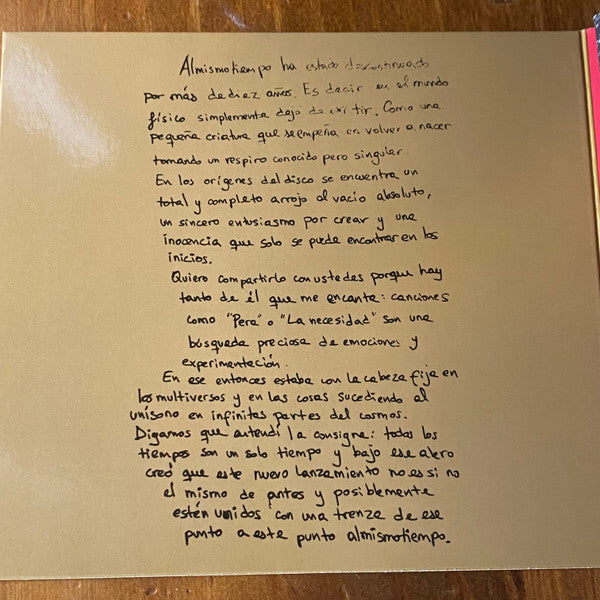 Almismotiempo ha estado discontinuado
por más de diez años. Es decir en el mundo
físico simplemente dejó de existir. Como una
pequeña criatura que se empeña en volver a nacer
tomando un respiro conocido pero singular.
En los orígenes del disco se encuentra un
total y completo arrojo al vacio absoluto,
un sincero entusiasmo por crear y una
inocencia que solo se puede encontrar en los
inicios.
Quiero compartirlo con ustedes porque hay
tanto de él que me encanta: canciones
como "Pera" o "La necesidad" son una
búsqueda preciosa de emociones y
experimentación.
En ese entonces estaba con la cabeza fija en
los multiversos y en las cosas sucediendo al
unísono en infinitas partes del cosmos.
Digamos que entendí la consigna: todos los
tiempos son un solo tiempo y bajo ese alero
creó que este nuevo lanzamiento no es si no
el mismo de antes y posiblemente
estén unidos con una trenza de ese
punto a este punto almismotiempo.